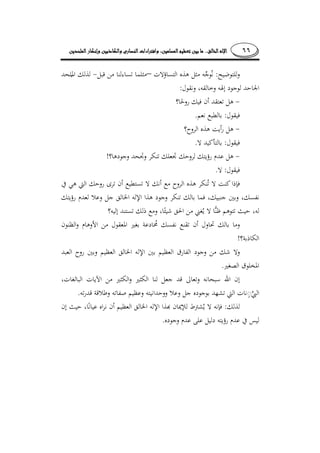 ٦٦ الإله الخالق.. ما بين تعظيم المسلمين، وافتراءات النصارى والكاذبين وإنكار الملحدين
وللتوضيح: نُوجِّه مثل هذه التساؤلات –مثلما تساءلنا من قبل– لذلك الملحد
الجاحد لوجود إلهه وخالقه، ونقول:
- هل تعتقد أن فيك روحًا؟
فيقول: بالطبع نعم.
- هل رأيت هذه الروح؟
فيقول: بالتأكيد لا.
- هل عدم رؤيتك لروحك تجعلك تنكر وتجحد وجودها؟!
فيقول: لا.
فإذا كنت لا تُنكر هذه الروح مع أنك لا تستطيع أن ترى روحك التي هي في
نفسك، وبين جنبيك، فما بالك تنكر وجود هذا الإله الخالق جل وعلا لعدم رؤيتك
له، حيث تتوهم ظنًّا لا يُغني من الحق شيئًا، ومع ذلك تستند إليه؟
وما بالك تحاول أن تقنع نفسك مُخادعة بغير المعقول من الأوهام والظنون
الكاذبة؟!
ولا شك من وجود الفارق العظيم بين الإله الخالق العظيم وبين روح العبد
المخلوق الصغير.
إن الله سبحانه وتعالى قد جعل لنا الكثير والكثير من الآيات البالغات،
البيِّنات التي تشهد بوجوده جل وعلا ووحدانيته وعظيم صفاته وطلاقة قدرته.
لذلك: فإنه لا يُشترط للإيمان بهذا الإله الخالق العظيم أن نراه عيانًا، حيث إن
ليس في عدم رؤيته دليل على عدم وجوده.